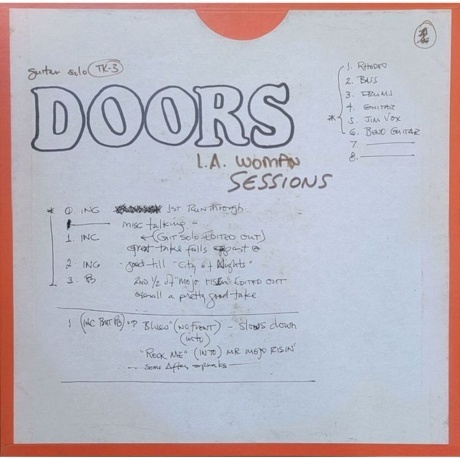 guitar solo TK-3
DOORS
L.A. WOMAN
SESSIONS
1. RHODES
2. BASS
3. DRUMS
4. GUITAR
* 5. JIM VOX
6. BEND GUITAR
7.
8.
* 0. INC 1ST RUNTHROUGH
misc talking
1 INC (GIT SOLO EDITED OUT)
great take falls apart @
2. INC good till "City of Nights"
3. B 2ND 1/2 of "MOJO RISIN" EDITED OUT
overall a pretty good take
1 (INC BUT B) "BLUES" (NO FRONT) - SLOWS down
(into)
"ROCK ME" (INTO) MR MOJO RISIN'
some After